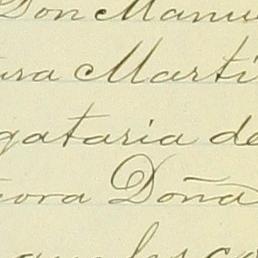 Don Manu
ura Marti
gataria de
ora Doña